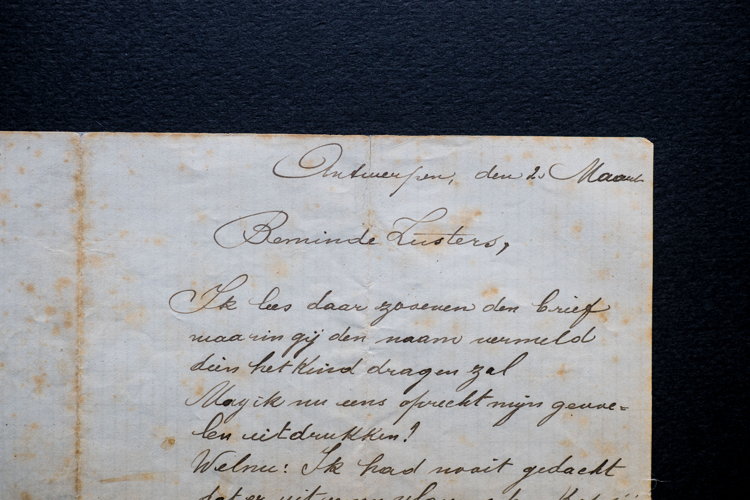 Antwerpen, den 2 Maart
Beminde Zusters,
Ik lees daar zooeven den brief
waarin gij den naam vermeld
dien het Kind dragen zal
Mag ik nu eens oprecht mijn gevoe=
len uitdrukken?
Welnu: Ik had nooit gedacht
dat er uit